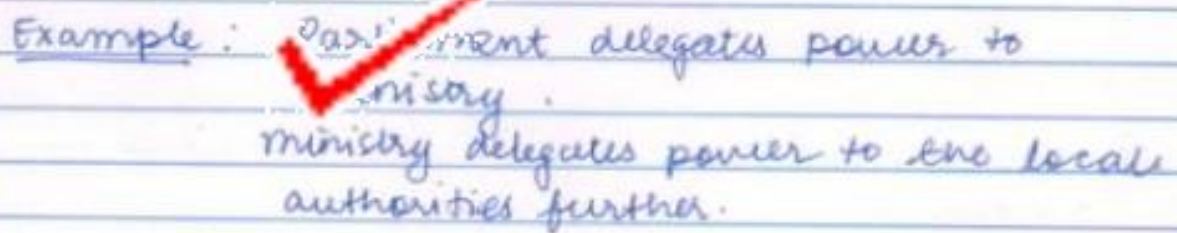 Example : Parliament delegates power to
ministry .
ministry delegates power to the local
authorities further.